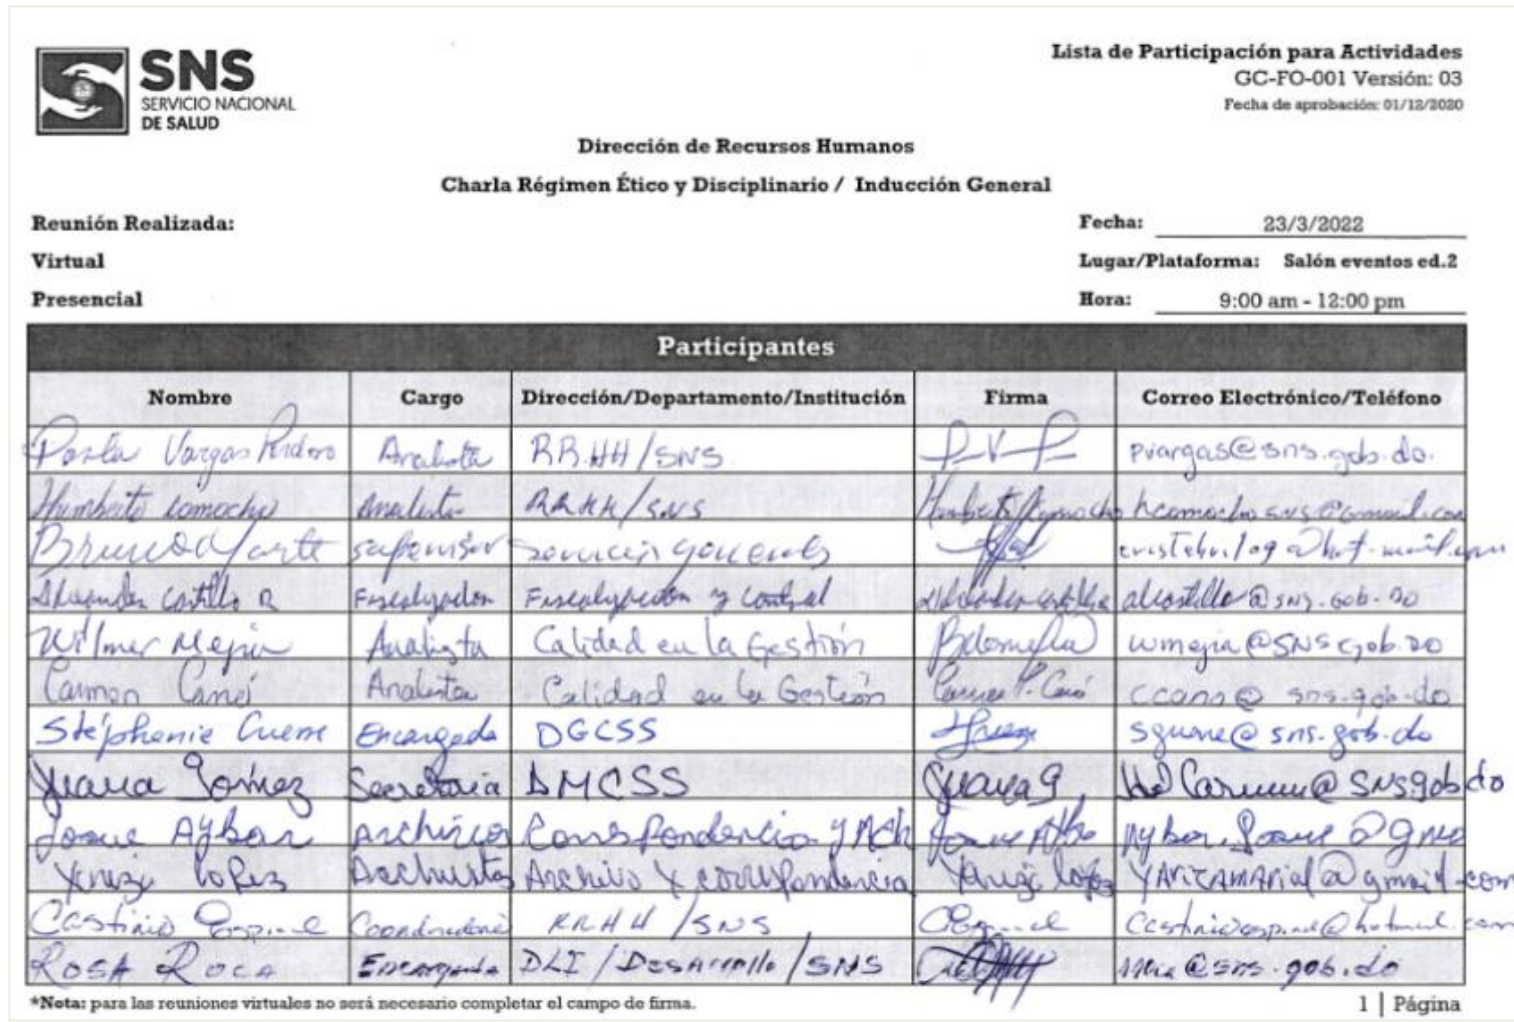 SNS
SERVICIO NACIONAL
DE SALUD
Lista de Participación para Actividades
GC-FO-001 Versión: 03
Fecha de aprobación: 01/12/2020
Dirección de Recursos Humanos
Charla Régimen Ético y Disciplinario / Inducción General
Reunión Realizada:
Fecha: 23/3/2022
Virtual
Lugar/Plataforma: Salón eventos ed.2
Presencial
Hora: 9:00 am - 12:00 pm
Participantes
Nombre Cargo Dirección/Departamento/Institución Firma Correo Electrónico/Teléfono
Vargas Analista RR.HH/SNS P.V.P pvargas@sns.gob.do.
Humberto Camacho Analista RRHH/SNS Humberto Camacho hcamacho.sns@gmail.com
supervisor servicios generales
Alexander Castillo R Fiscalización y control alcastillo@sns.gob.do
Wilmer Mejia Analista Calidad en la Gestión wmejia@SNS.gob.do
Carmen Cano Analista Calidad en la Gestión ccano@sns.gob.do
Stéphanie Encargada DGCSS @sns.gob.do
Juana Gómez Secretaria DMCSS Juana G @SNS.gob.do
Josue Aybar Correspondencia y Aybar.Josue@gma
Lopez Archivista Archivo y correspondencia Lopez @gmail.com
Castinio Espinal Coordinadora RRHH/SNS
Rosa Roca Encargada DLI/Desarrollo/SNS @sns.gob.do
*Nota: para las reuniones virtuales no será necesario completar el campo de firma.
1 | Página